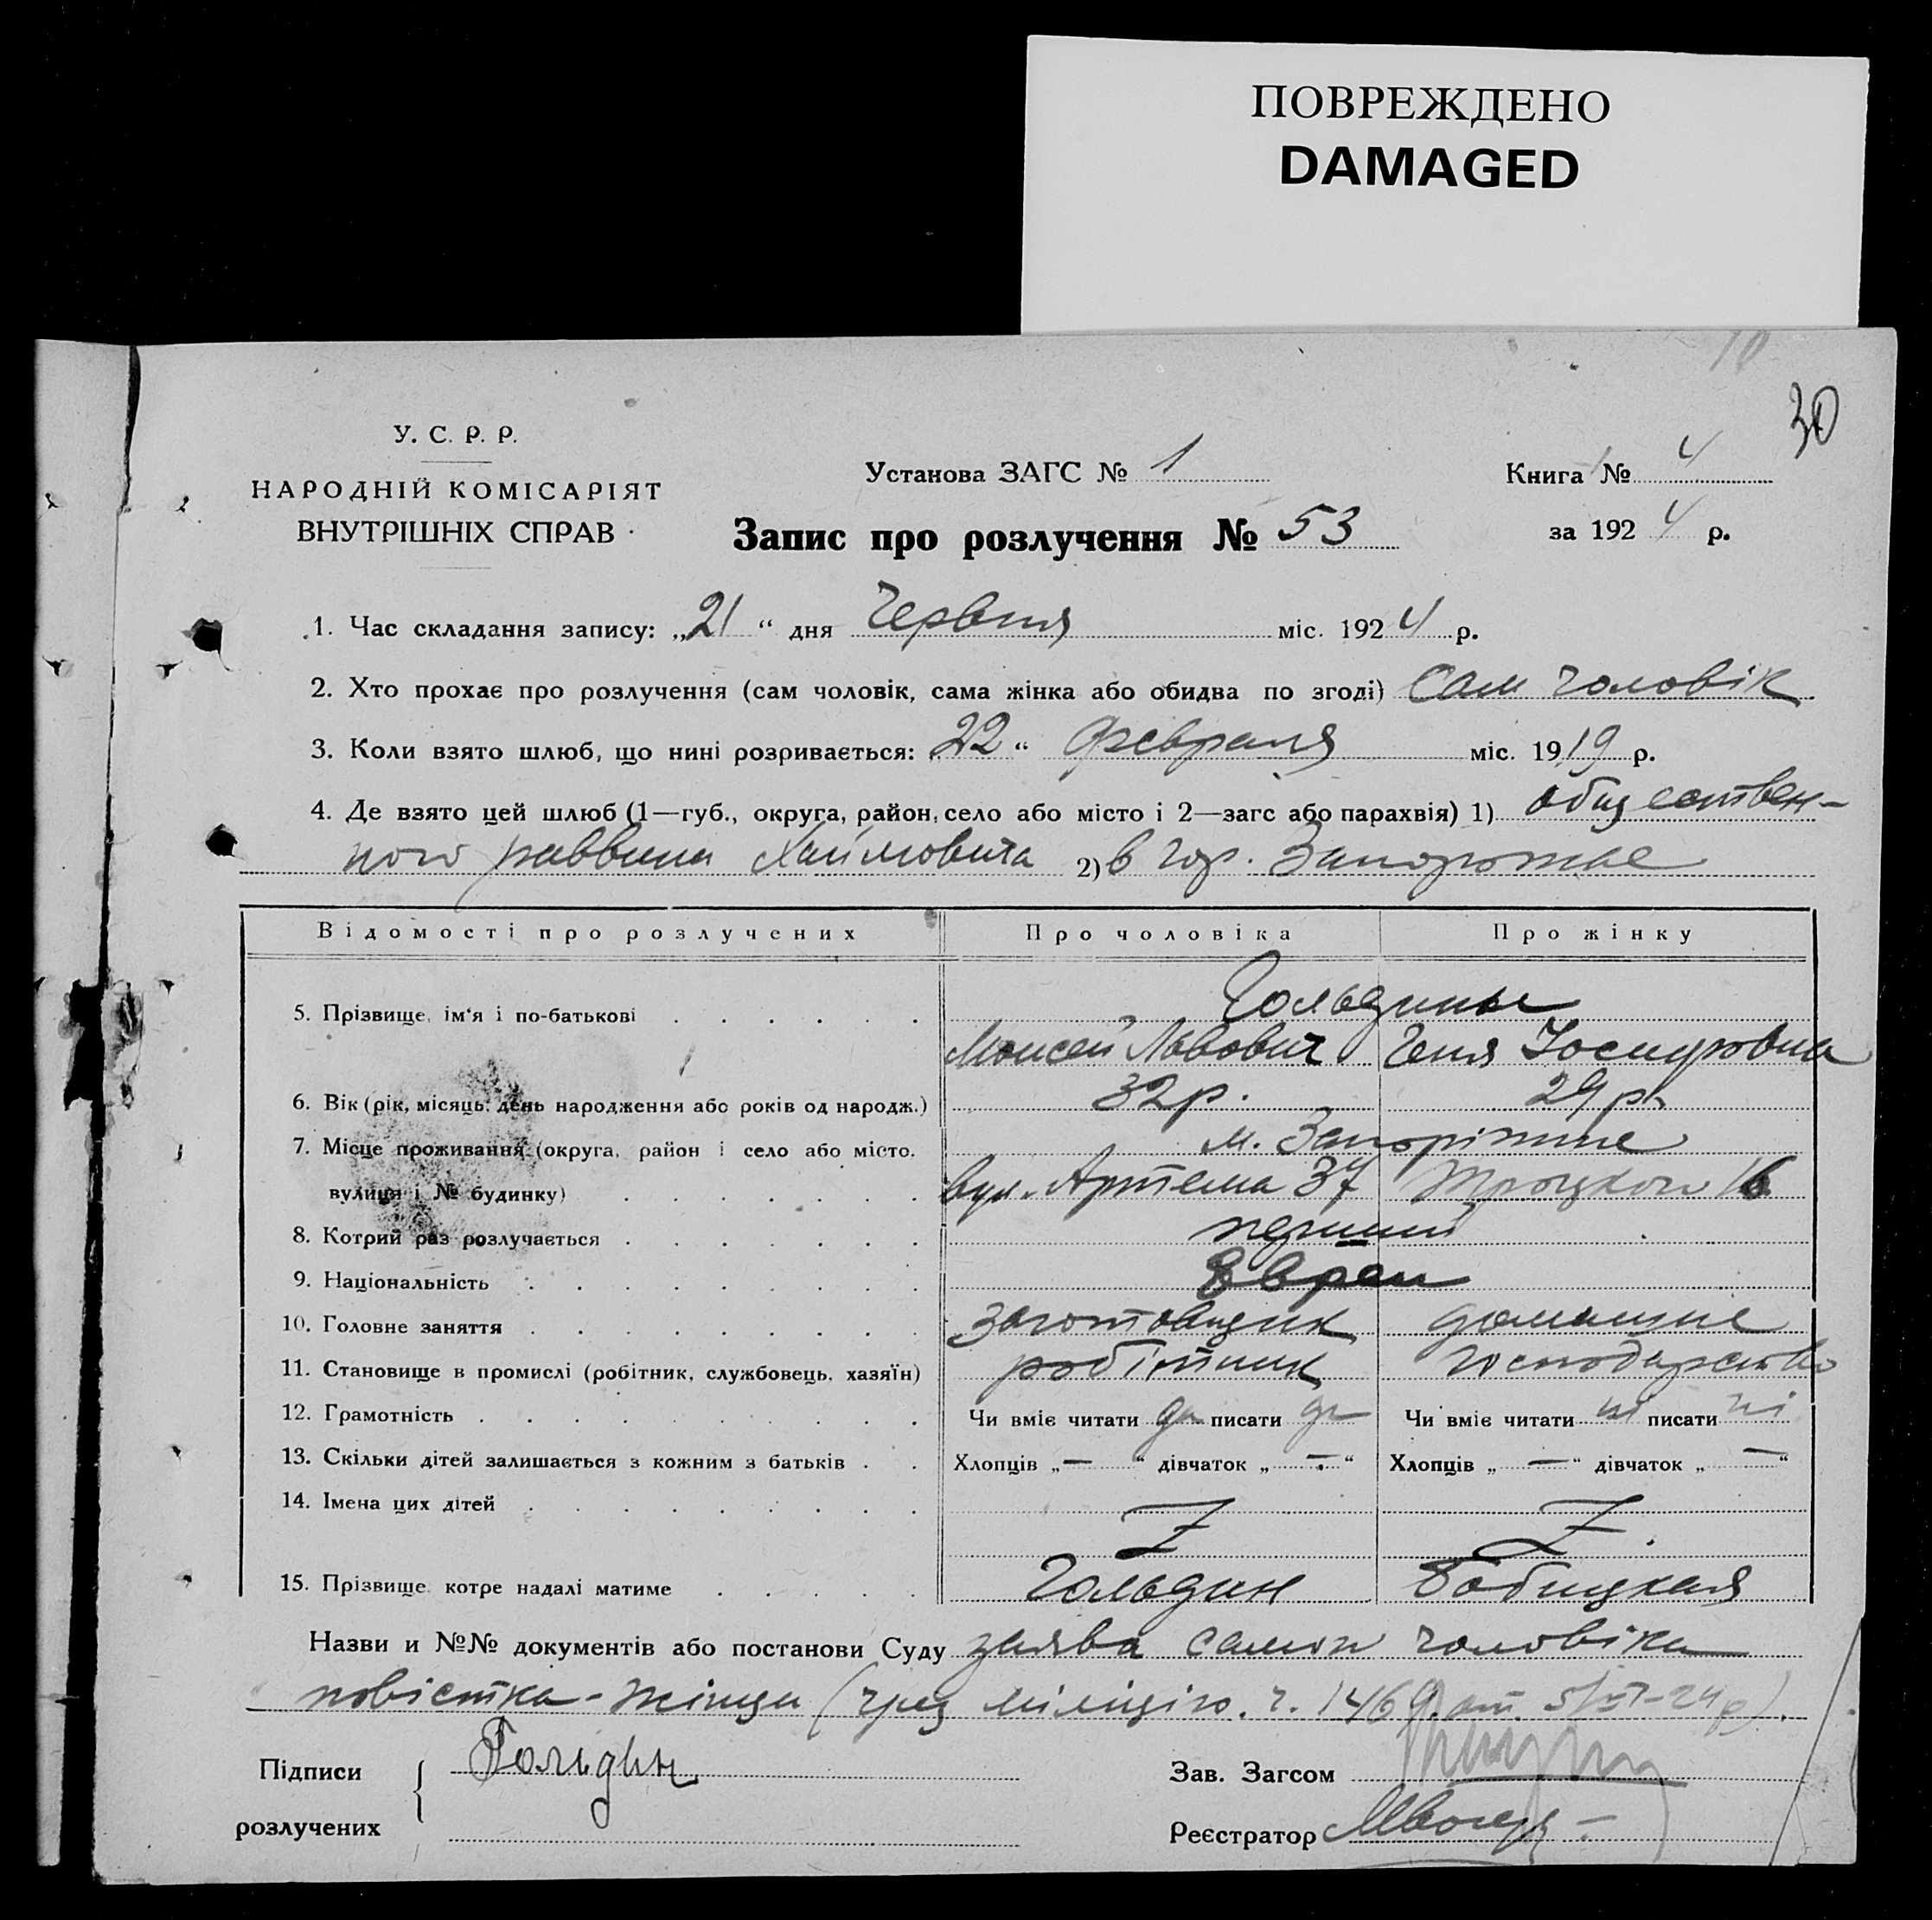 ПОВРЕЖДЕНО
DAMAGED
10
30
У. С. Р. Р.
НАРОДНІЙ КОМІСАРІЯТ
ВНУТРІШНІХ СПРАВ
Установа ЗАГС № 1
Книга № 4
Запис про розлучення № 53
за 1924 р.
1. Час складання запису: „21“ дня Червня міс. 1924 р.
2. Хто прохає про розлучення (сам чоловік, сама жінка або обидва по згоді) Сам чоловік
3. Коли взято шлюб, що нині розривається: „22“ февраля міс. 1919 р.
4. Де взято цей шлюб (1—губ., округа, район, село або місто і 2—загс або парахвія) 1) обществен-
ного раввина Хаймовича 2) в гор. Запорожье
Відомості про розлучених Про чоловіка Про жінку
Гольдины
5. Прізвище, ім‘я і по-батькові Моисей Львович Геня Иосифовна
6. Вік (рік, місяць, день народження або років од народж.) 32 р. 29 р.
7. Місце проживання (округа, район і село або місто, м. Запоріжже
вулиця і № будинку) вул. Артема 37 Троцкого 16
8. Котрий раз розлучається перший
9. Національність Евреи
10. Головне заняття Заготовщик домашне
11. Становище в промислі (робітник, службовець, хазяїн) робітник господарство
12. Грамотність Чи вміє читати да писати да Чи вміє читати ні писати ні
13. Скільки дітей залишається з кожним з батьків Хлопців „—“ дівчаток „—“ Хлопців „—“ дівчаток „—“
14. Імена цих дітей
15. Прізвище котре надалі матиме Гольдин Бобицкая
Назви и №№ документів або постанови Суду заява самого чоловіка
повістка - жінци (через міліцію. ч. 1469 от 5/VI-24 р).
Підписи
розлучених
Гольдин
Зав. Загсом
Реєстратор